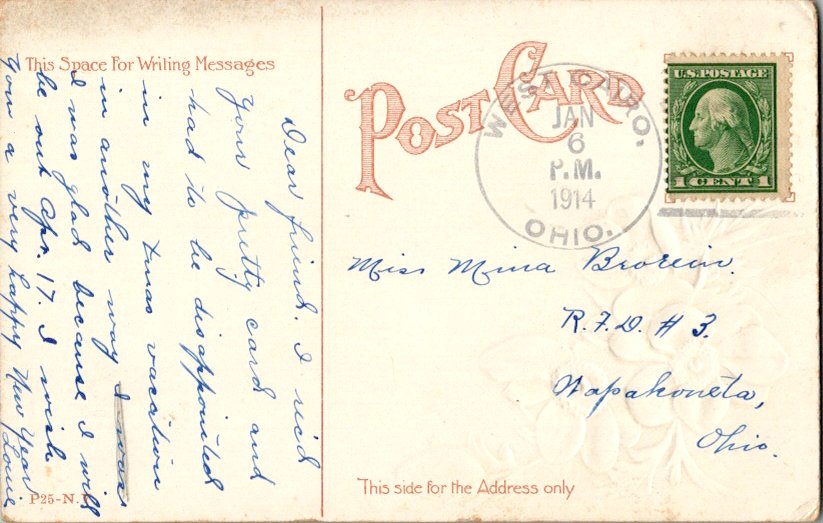 This Space For Writing Messages
POST CARD
WEST CAIRO,
JAN
6
P.M.
1914
OHIO.
U.S. POSTAGE
1 CENT 1
Dear friend. I rec'd
your pretty card and
had to be disappointed
in my Xmas vacation
in another way I was
I was glad because I will
be out Apr. 17. I wish
you a very happy New Year
Miss Mina Brorein.
R.F.D. # 3.
Wapakoneta,
Ohio.
P25-N.
This side for the Address only